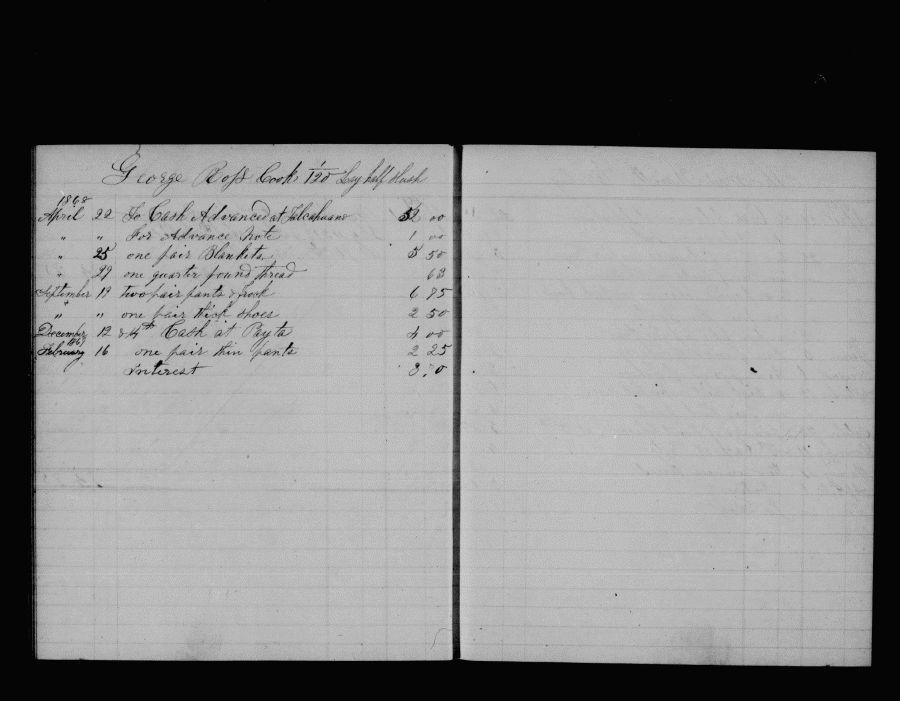 George Ross Cook 1/120 Lay half slush
1868
April 22 To Cash Advanced at Talcahuano 52 00
" " For Advance Note 1 00
" 25 one pair Blankets 5 50
" 29 one quarter pound thread 63
September 19 two pair pants & frock 6 75
" " one pair thick shoes 2 50
December 12 & 4th Cash at Payta 4 00
February 16 one pair thin pants 2 25
Interest 3.70